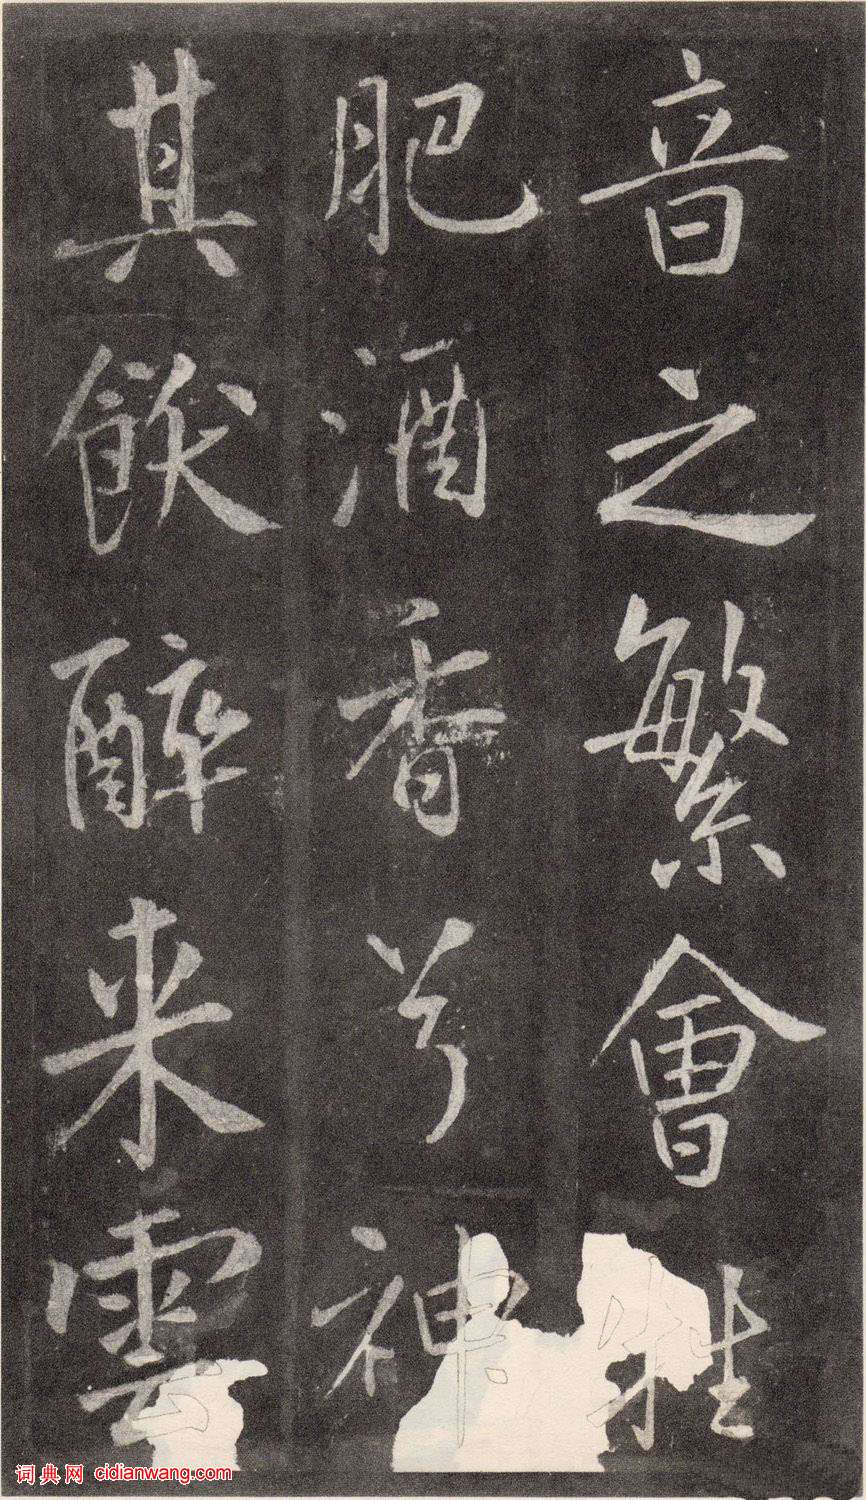 音之繁會牲
肥酒香兮神
其飫醉来雲
词典网 cidianwang.com